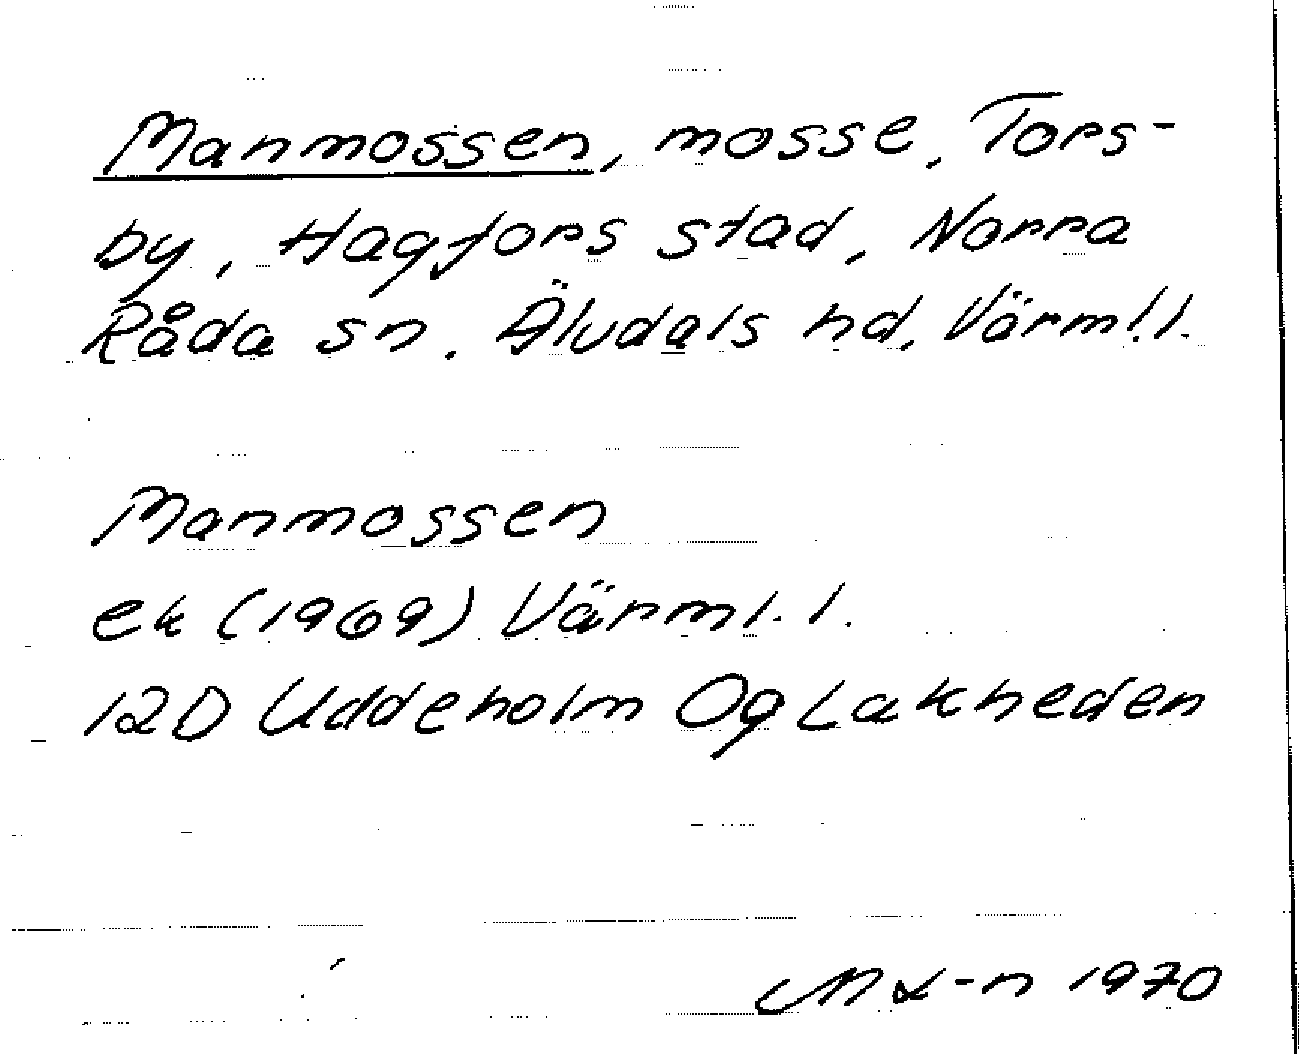 Manmossen, mosse, Tors-
by, Hagfors stad, Norra
Råda sn. Älvdals hd, Värml.l.
Manmossen
ek (1969) Värml.l.
12D Uddeholm Og Lakheden
1970